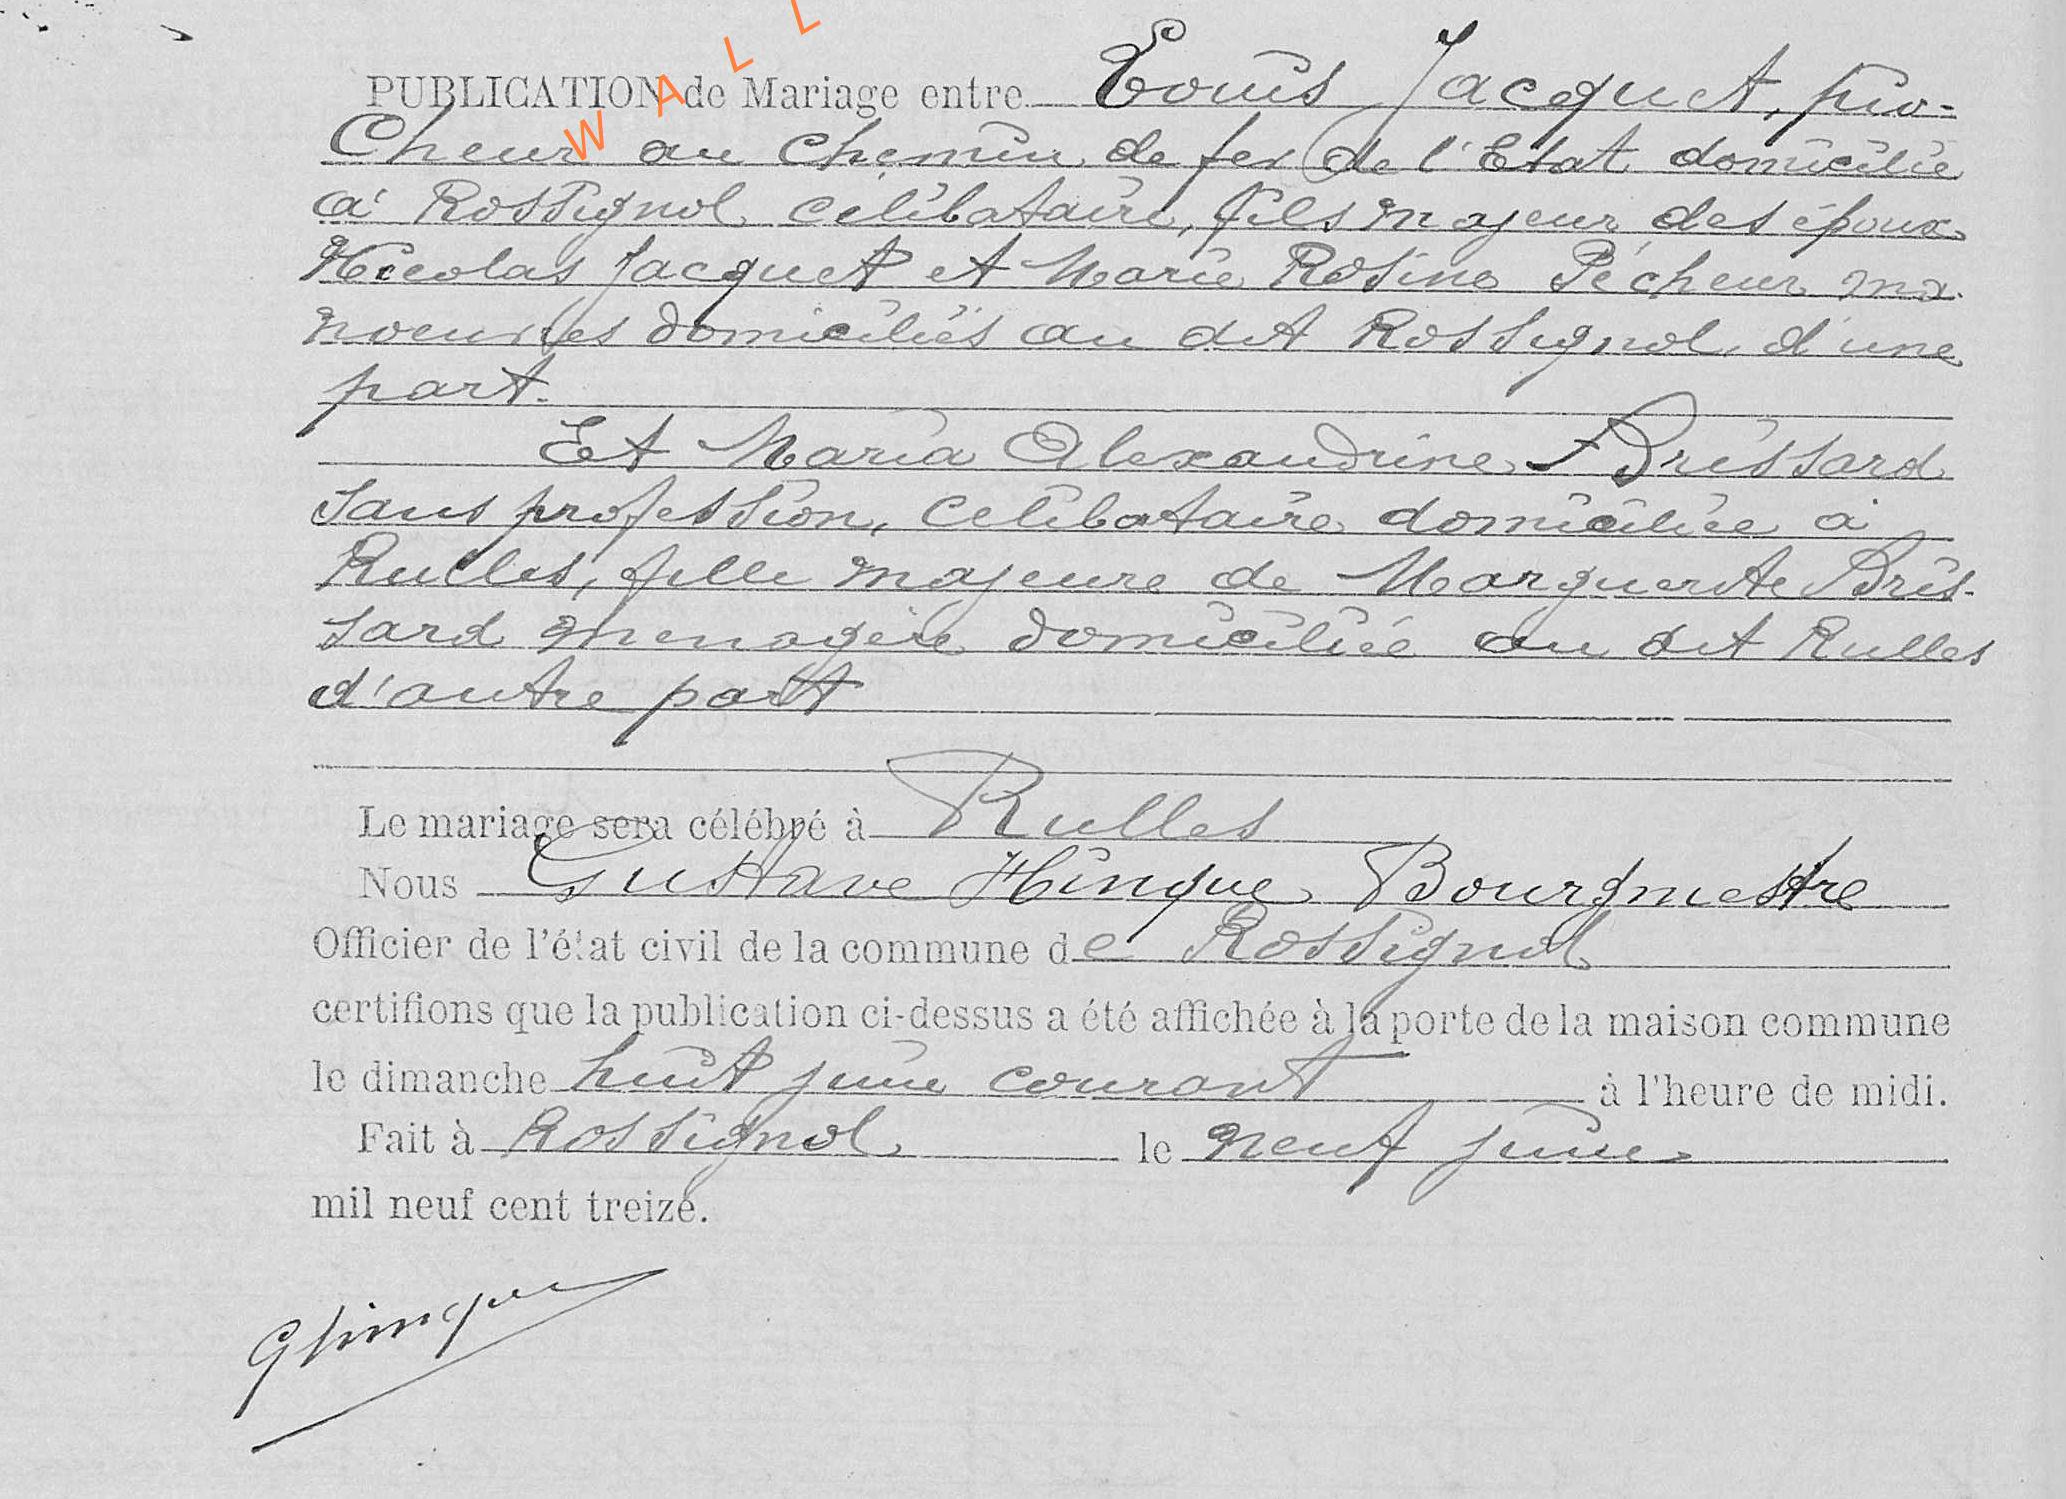 WALL
PUBLICATION de Mariage entre Louis Jacquet, pio-
cheur au chemin de fer de l'Etat domicilié
à Rossignol célibataire, fils majeur des époux
Nicolas Jacquet et Marie Rosine Pécheur ma-
noeuvres domiciliés au dit Rossignol d'une
part.
Et Maria Alexandrine Brissard
sans profession, célibataire domiciliée à
Rulles, fille majeure de Marguerite Bris-
sard menagère domiciliée au dit Rulles
d'autre part
Le mariage sera célébré à Rulles
Nous Gustave Hinque Bourgmestre
Officier de l'état civil de la commune de Rossignol
certifions que la publication ci-dessus a été affichée à la porte de la maison commune
le dimanche huit juin courant à l'heure de midi.
Fait à Rossignol le neuf juin
mil neuf cent treize.
GHinque